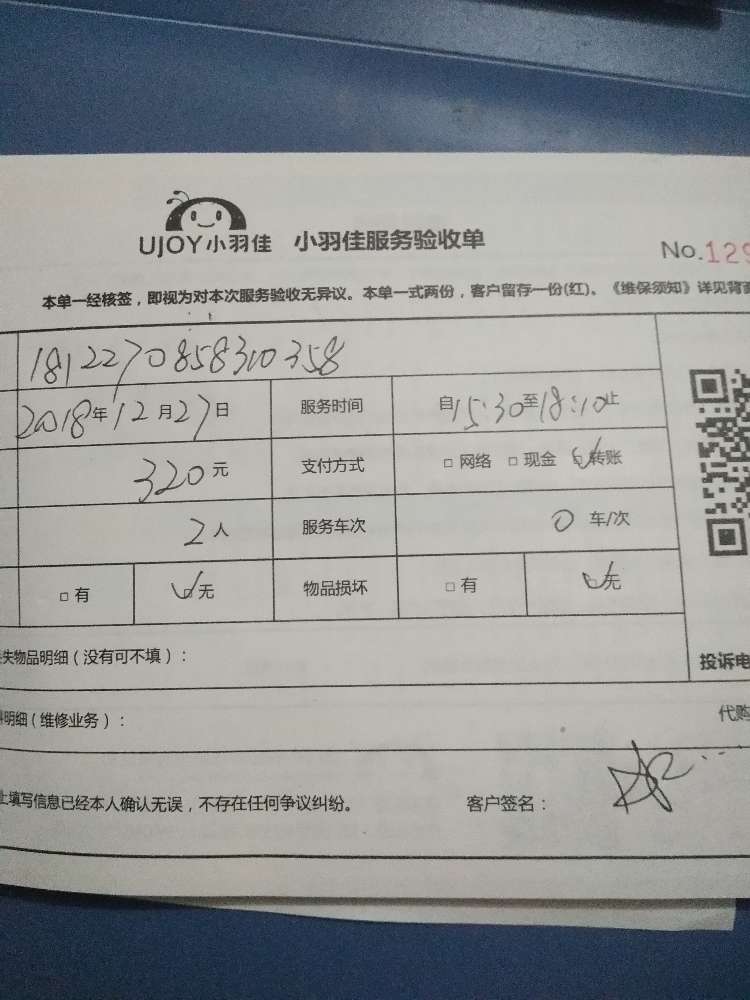 UJOY小羽佳 小羽佳服务验收单
No.129
本单一经核签，即视为对本次服务验收无异议。本单一式两份，客户留存一份(红)、《维保须知》详见背面
1812270858310358
2018年12月27日 服务时间 自15:30至18:10止
320元 支付方式 □ 网络 □ 现金 ☑转账
2人 服务车次 0 车/次
□ 有 ☑无 物品损坏 □ 有 ☑无
失物品明细（没有可不填）：
投诉电
明细（维修业务）：
代购
上填写信息已经本人确认无误，不存在任何争议纠纷。 客户签名：